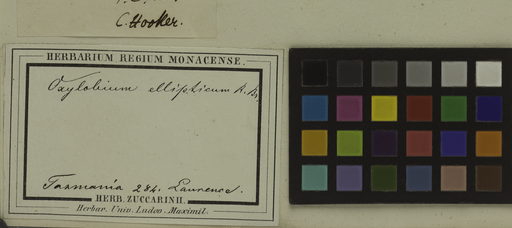 C. Hooker.
HERBARIUM REGIUM MONACENSE.
Oxylobium ellipticum R. Br.
Tasmania 284. Laurence.
HERB. ZUCCARINII.
Herbar. Univ. Ludov. Maximil.